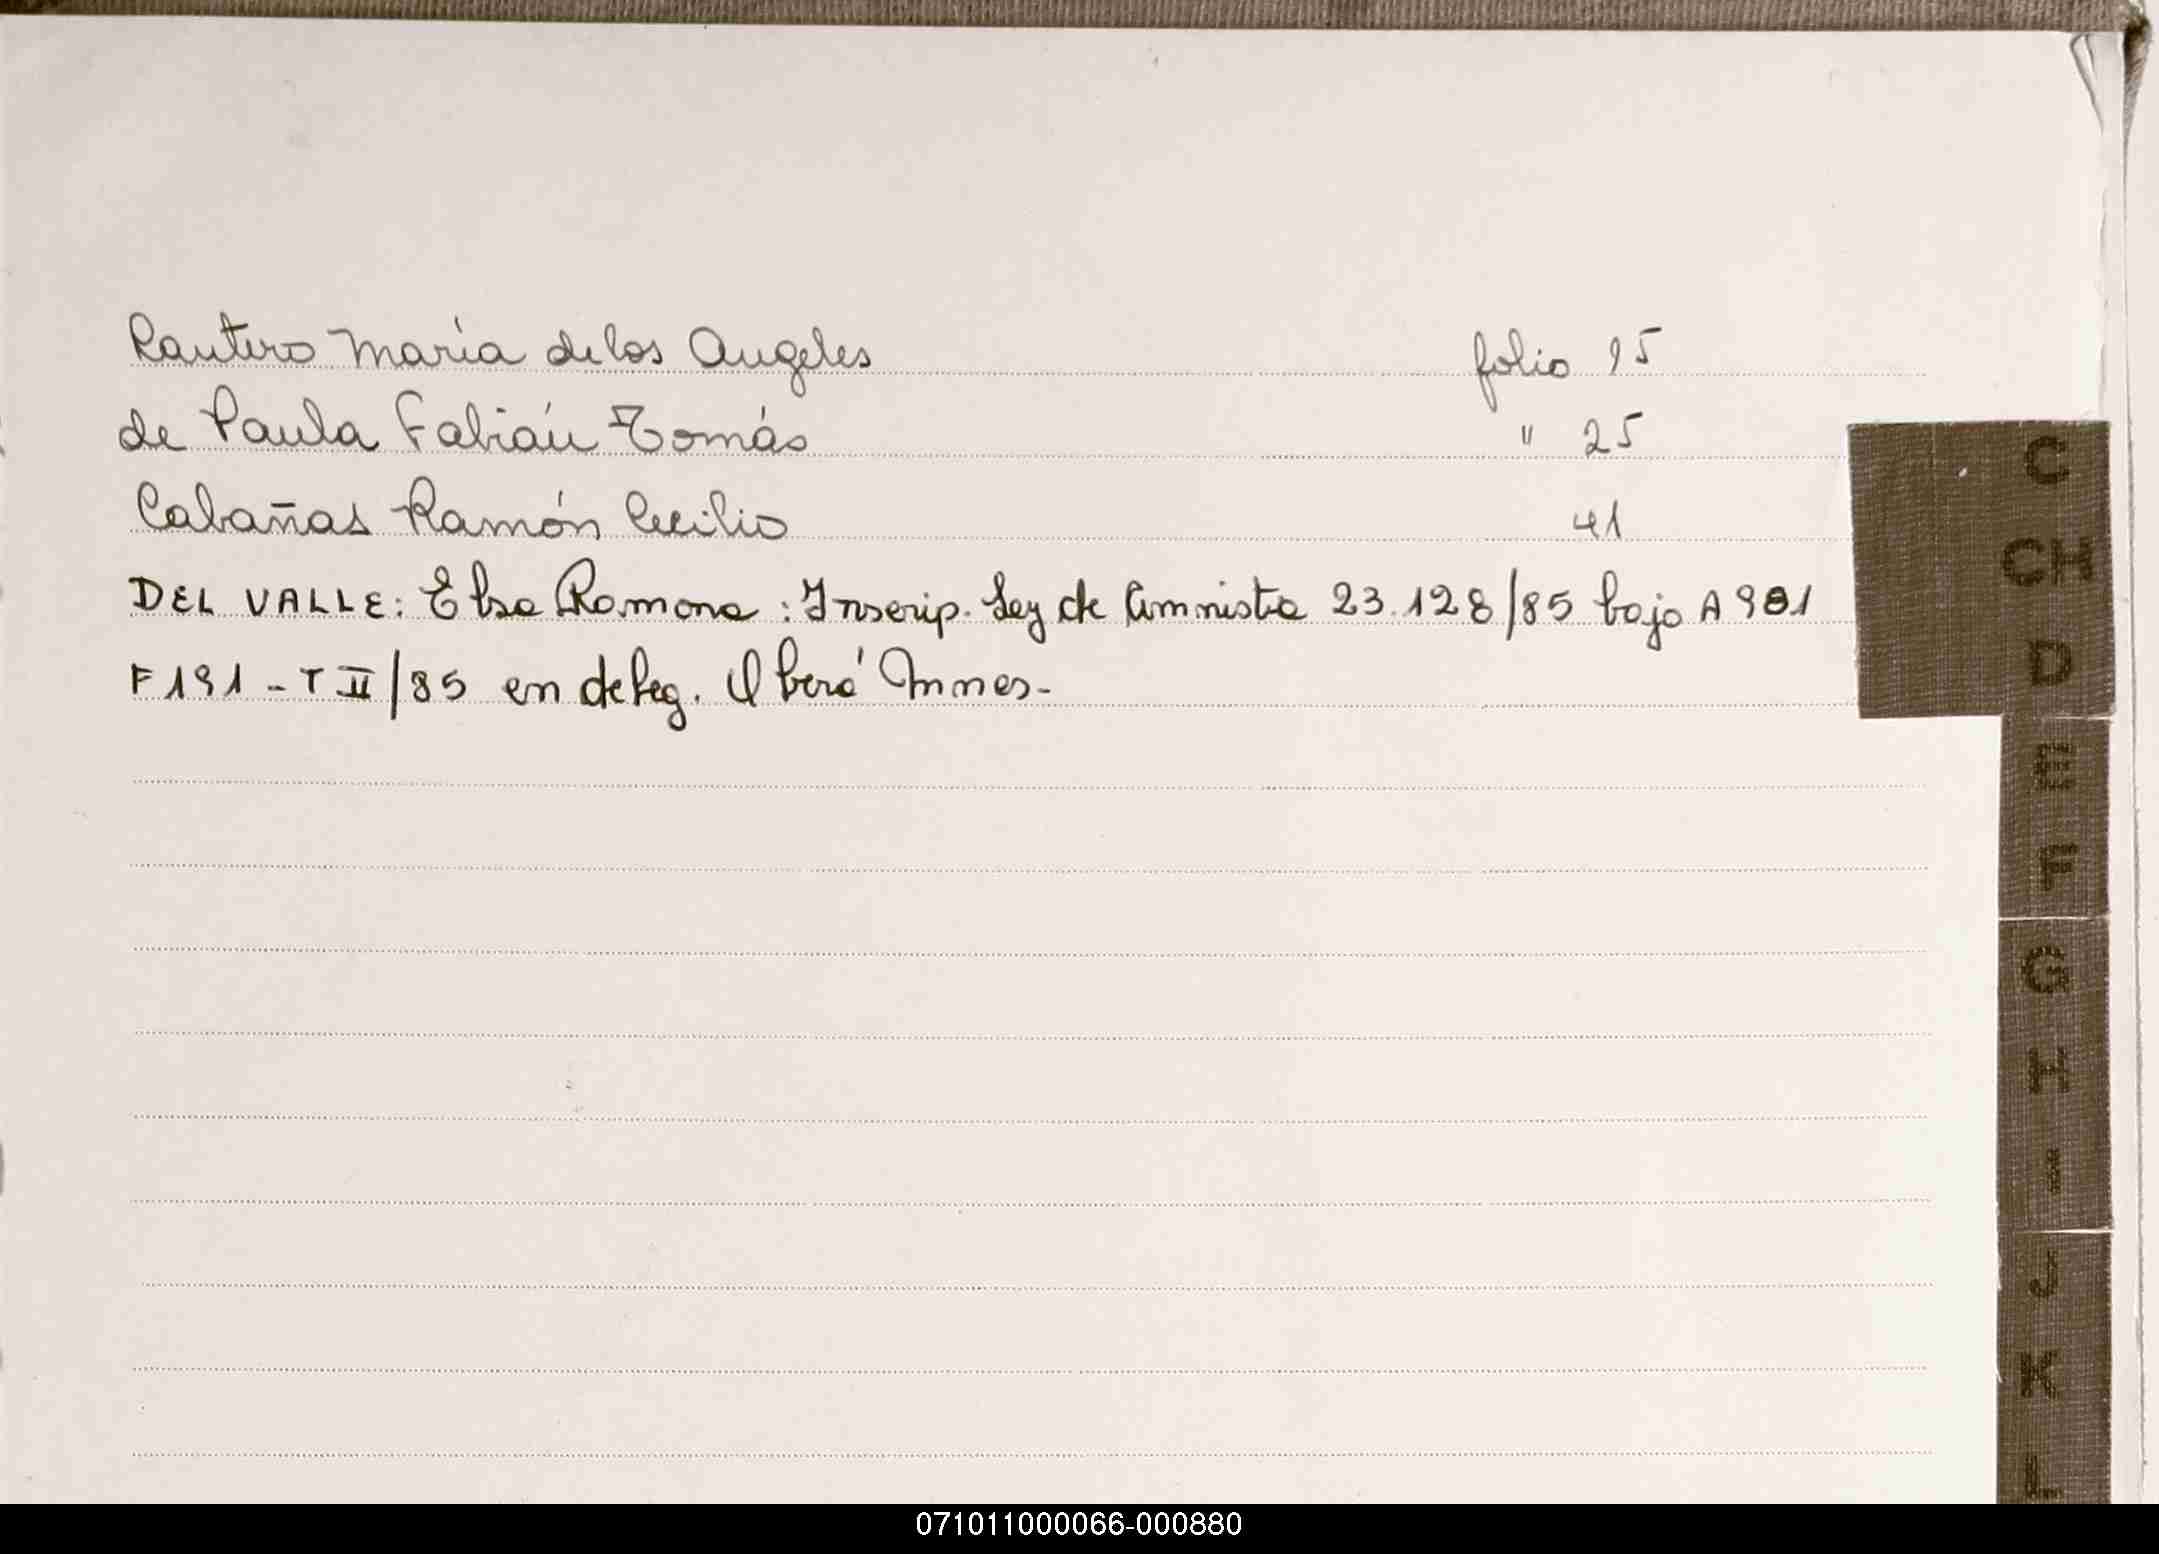 Cantero María de los Angeles folio 15
de Paula Fabián Tomás " 25
Cabañas Ramón Cecilio 41
DEL VALLE: Elsa Ramona: Inscrip. Ley de Amnistia 23.128/85 bajo A 981
F 191 - T II/85 en deleg. Oberá Mnes.-
C
CH
D
E
F
G
H
I
J
K
L
071011000066-000880